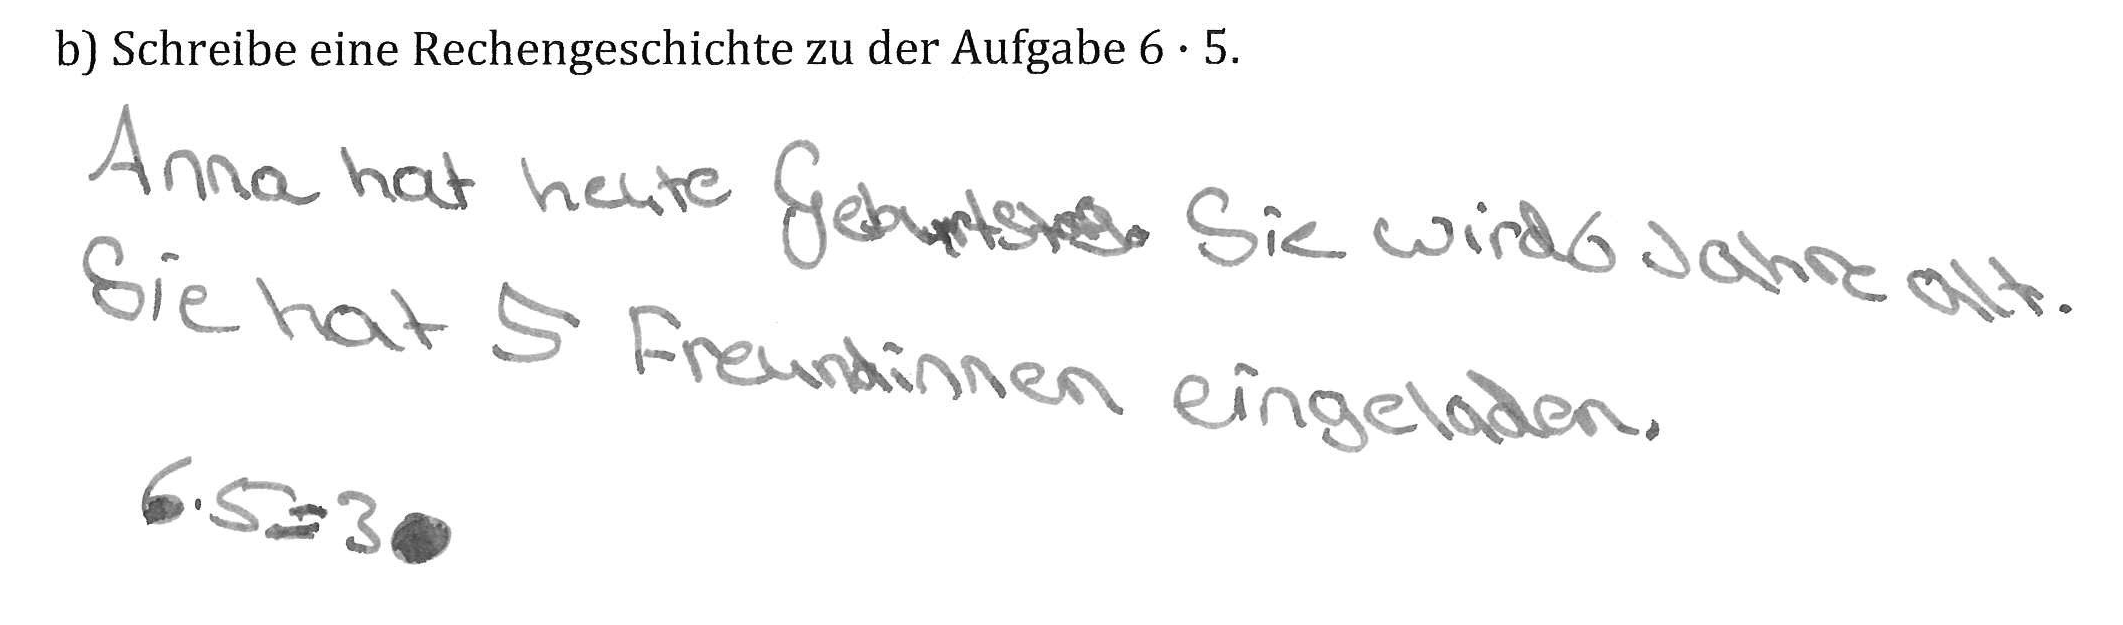 b) Schreibe eine Rechengeschichte zu der Aufgabe 6 · 5.
Anna hat heute Geburtstag. Sie wird 6 Jahre alt.
Sie hat 5 Freundinnen eingeladen.
6·5=30